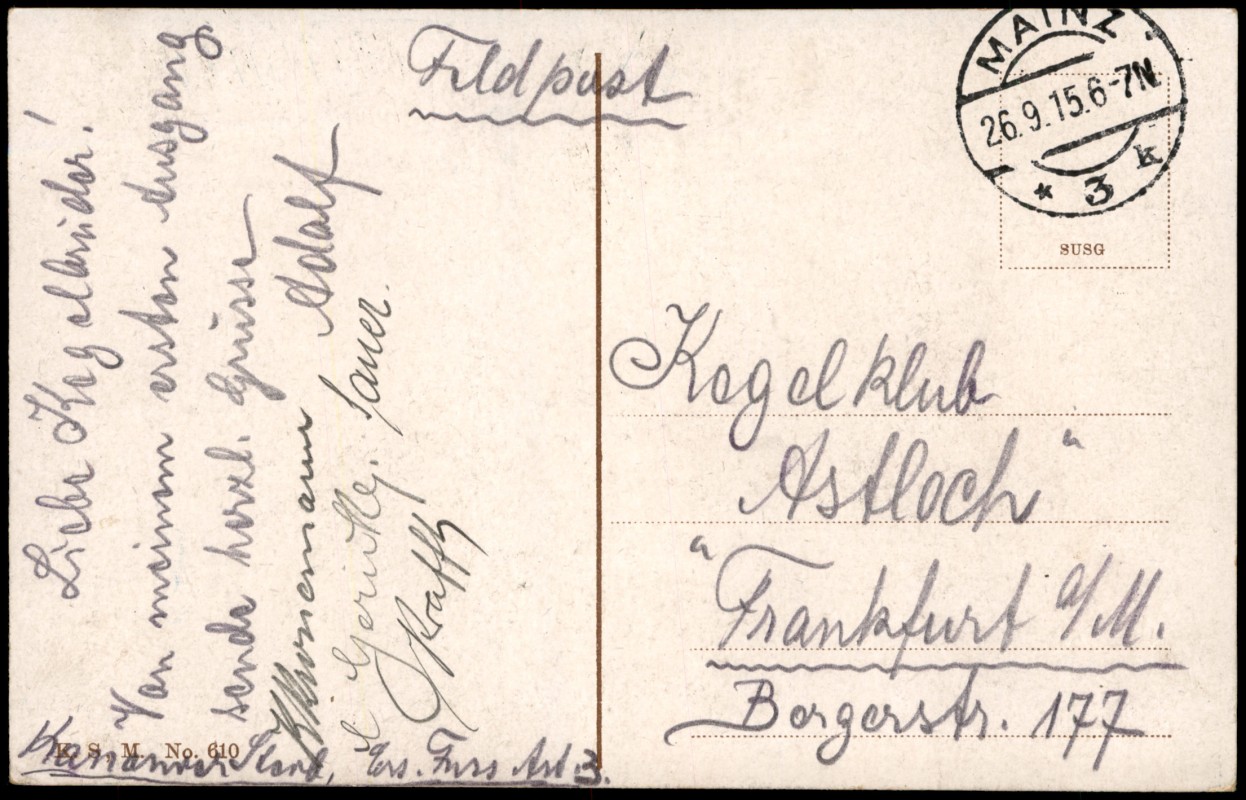 Feldpost
MAINZ
26.9.15.6-7N
* 3 k
SUSG
Liebe Kegelbrüder!
Von meinem ersten Ausgang
sende herzl. Grüsse
Adolf
Sauer.
Kraffy
Kegelklub
"Astloch"
Frankfurt a/M.
Bergerstr. 177
K. S. M. No. 610
Ers. Fuss Art. 3.